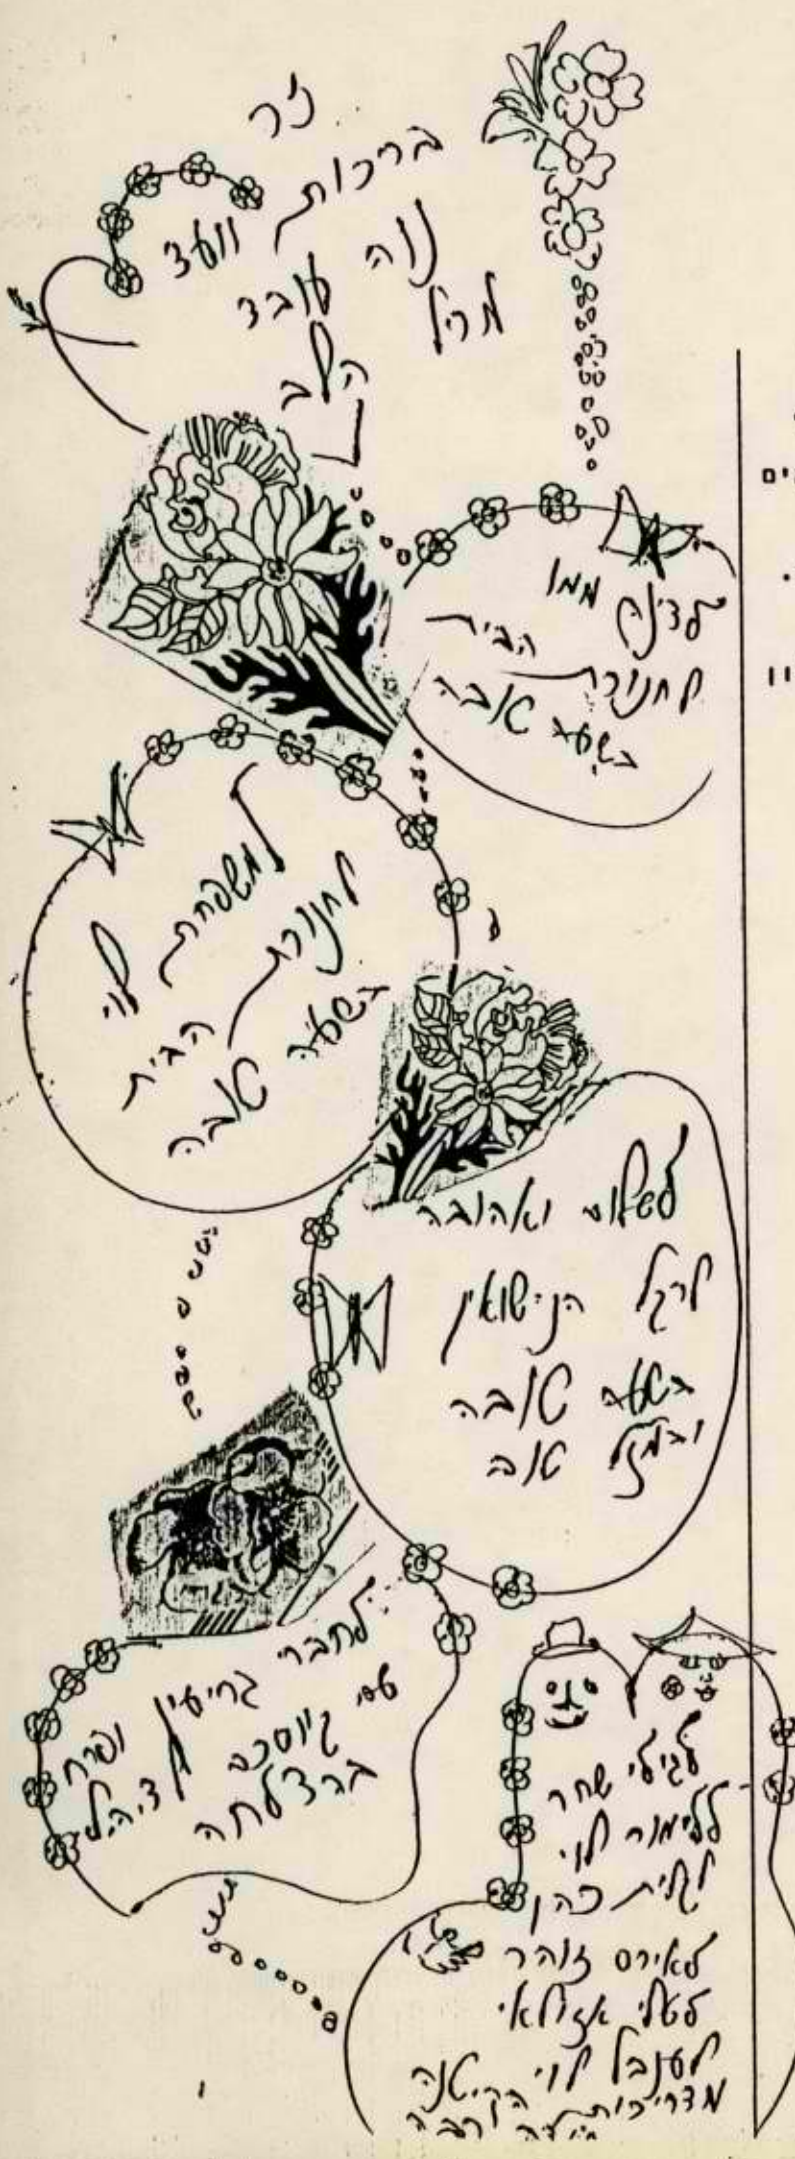 זר
ברכות וועד
נוה עובד
מרל
הלב
לדינה ממן
לחנוכת הבית
בשעה טובה
למשפחת לוי
לחנוכת הבית
בשעה טובה
לשלום ואהובה
לרגל הנישואין
בשעה טובה
ובמזל טוב
לחברי גריעין ופרח
עם גיוסכם לצ.ה.ל
ברצלחה
לגילי שחר
ללימור לוי
לגלית כהן
לאירס זוהר
לטלי אזולאי
לענבל לוי
מדריכות הקיטנה
תודה רבה
ים